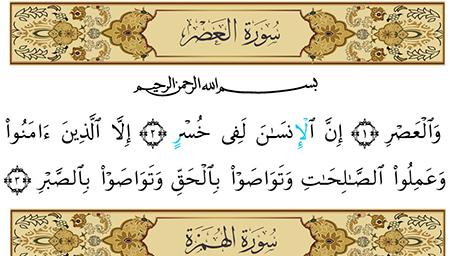 سُورَةُ العَصْرِ
بسم الله الرحمن الرحيم
وَٱلۡعَصۡرِ ﴿١﴾ إِنَّ ٱلۡإِنسَٰنَ لَفِى خُسۡرٍ ﴿٢﴾ إِلَّا ٱلَّذِينَ ءَامَنُوا۟
وَعَمِلُوا۟ ٱلصَّٰلِحَٰتِ وَتَوَاصَوۡا۟ بِٱلۡحَقِّ وَتَوَاصَوۡا۟ بِٱلصَّبۡرِ ﴿٣﴾
سُورَةُ الهُمَزَةِ